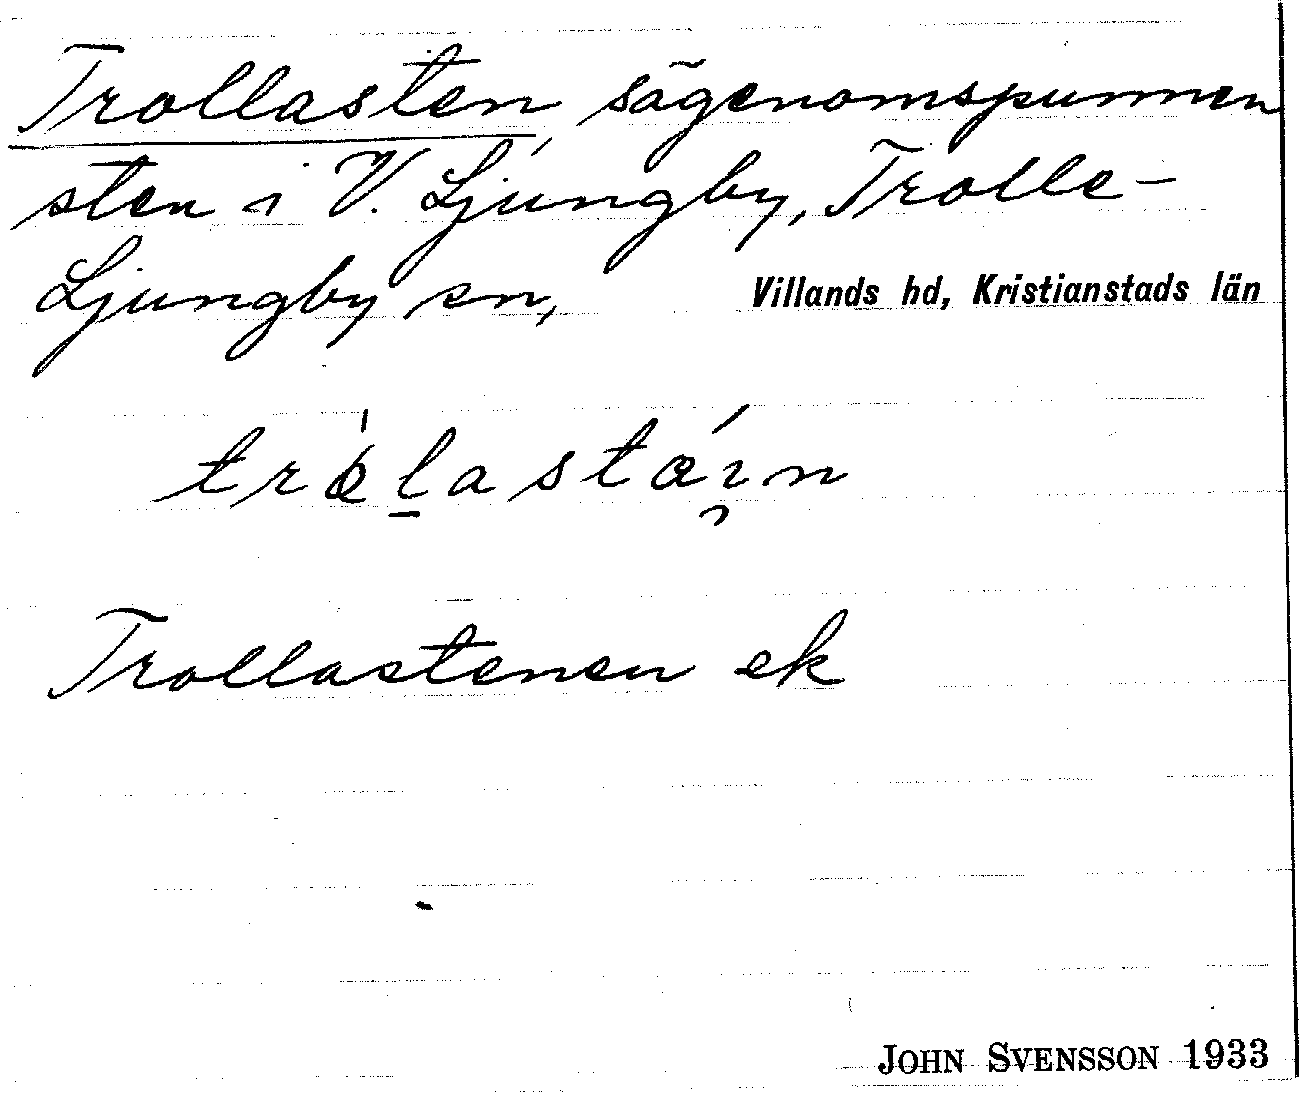 Trollasten, sägenomspunnen
sten i V. Ljungby, Trolle-
Ljungby sn, Villands hd, Kristianstads län
Trollastenen ek
JOHN SVENSSON 1933